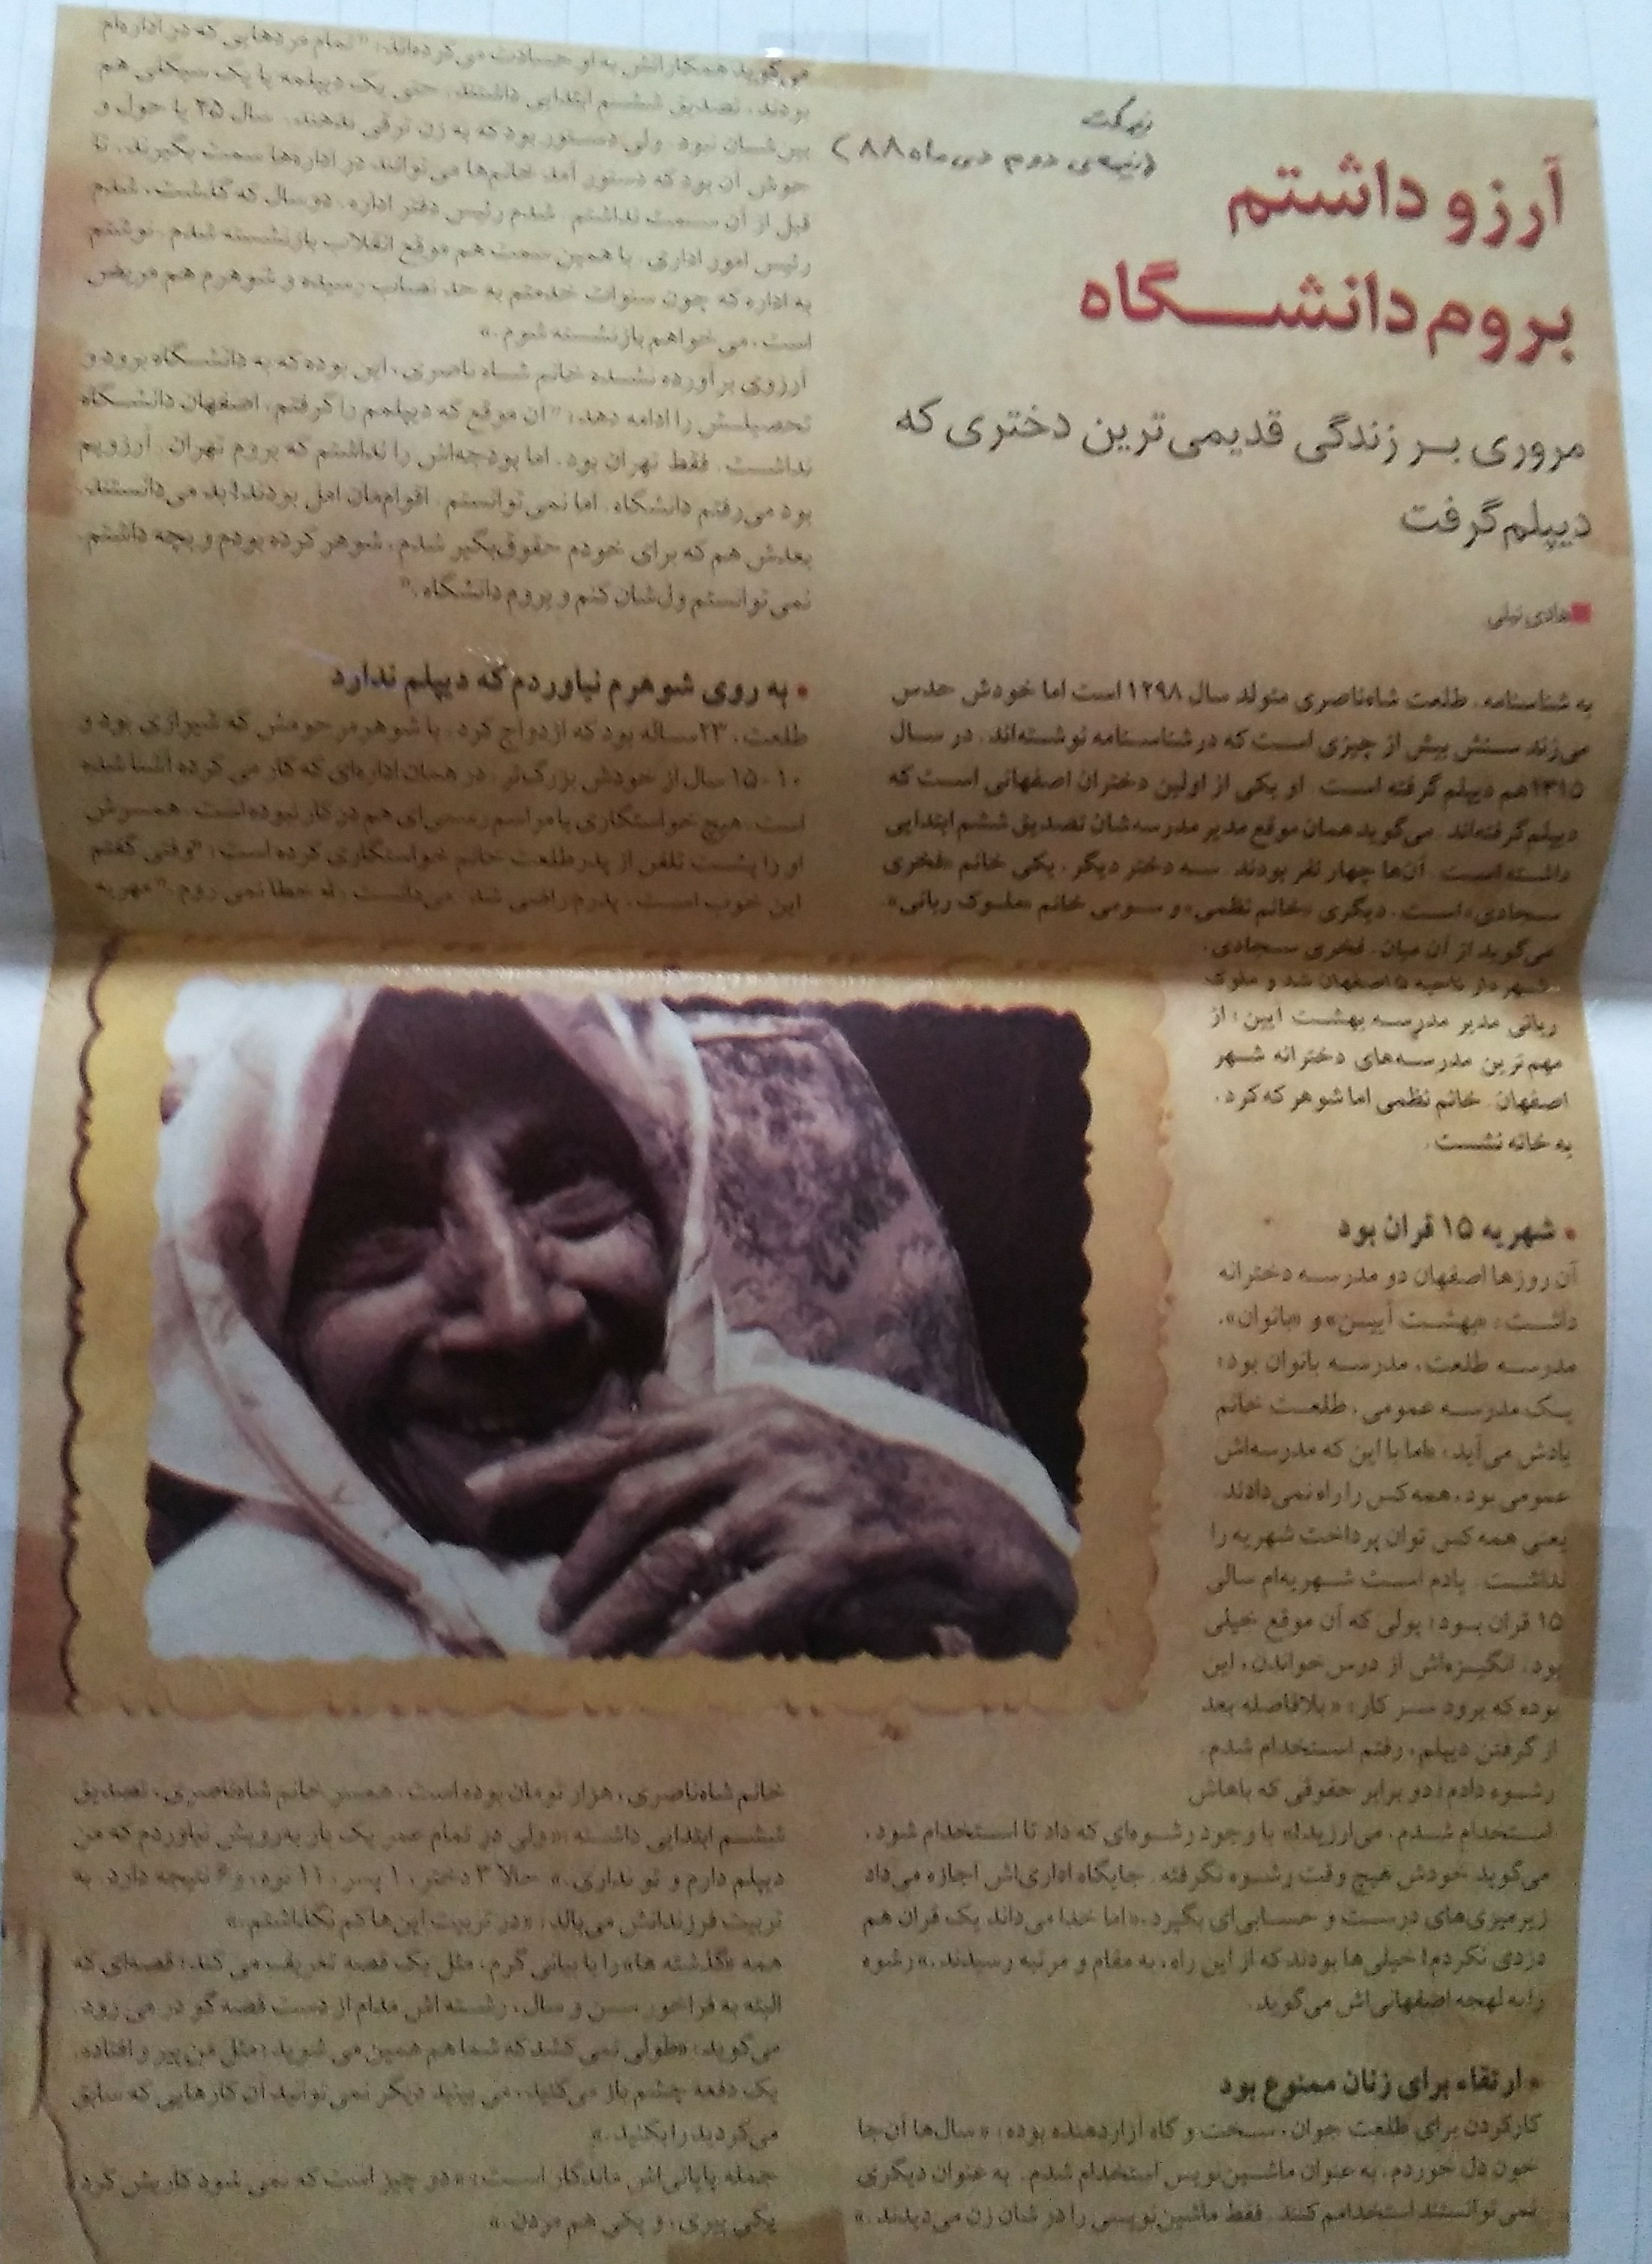 نیم‌کت
(نیمه‌ی دوم دی‌ماه ۸۸)
آرزو داشتم
بروم دانشگاه
مروری بر زندگی قدیمی‌ترین دختری که
دیپلم گرفت
هادی نیلی
به شناسنامه، طلعت شاه‌ناصری متولد سال ۱۲۹۸ است اما خودش حدس
می‌زند سنش بیش از چیزی است که در شناسنامه نوشته‌اند. در سال
۱۳۱۵ هم دیپلم گرفته است. او یکی از اولین دختران اصفهانی است که
دیپلم گرفته‌اند. می‌گوید همان موقع مدیر مدرسه‌شان تصدیق ششم ابتدایی
داشته است. آن‌ها چهار نفر بودند. سه دختر دیگر، یکی خانم «فخری
سجادی» است، دیگری «خانم نظمی» و سومی خانم «ملوک ربانی».
می‌گوید از آن میان، فخری سجادی،
شهردار ناحیه ۵ اصفهان شد و ملوک
ربانی مدیر مدرسه بهشت آیین؛ از
مهم‌ترین مدرسه‌های دخترانه شهر
اصفهان. خانم نظمی اما شوهر که کرد،
به خانه نشست.
• شهریه ۱۵ قران بود
آن روزها اصفهان دو مدرسه دخترانه
داشت؛ «بهشت آیین» و «بانوان».
مدرسه طلعت، مدرسه بانوان بود؛
یک مدرسه عمومی. طلعت خانم
یادش می‌آید: «اما با این که مدرسه‌اش
عمومی بود، همه کس را راه نمی‌دادند.
یعنی همه کس توان پرداخت شهریه را
نداشت. یادم است شهریه‌ام سالی
۱۵ قران بود؛ پولی که آن موقع خیلی
بود. انگیزه‌اش از درس خواندن، این
بوده که برود سر کار: «بلافاصله بعد
از گرفتن دیپلم، رفتم استخدام شدم.
رشوه دادم؛ دو برابر حقوقی که باهاش
استخدام شدم. می‌ارزید!» با وجود رشوه‌ای که داد تا استخدام شود،
می‌گوید خودش هیچ وقت رشوه نگرفته. جایگاه اداری‌اش اجازه می‌داد
زیرمیزی‌های درست و حسابی‌ای بگیرد. «اما خدا می‌داند یک قران هم
دزدی نکردم! خیلی‌ها بودند که از این راه، به مقام و مرتبه رسیدند.» رشوه
را به لهجه اصفهانی‌اش می‌گوید.
• ارتقاء برای زنان ممنوع بود
کارکردن برای طلعت جوان، سخت و گاه آزاردهنده بوده: «سال‌ها آن‌جا
خون دل خوردم. به عنوان ماشین‌نویس استخدام شدم. به عنوان دیگری
نمی‌توانستند استخدامم کنند. فقط ماشین‌نویسی را در شان زن می‌دیدند.»
می‌گوید همکارانش به او حسادت می‌کرده‌اند: "تمام مردهایی که در اداره‌ام
بودند، تصدیق ششم ابتدایی داشتند. حتی یک دیپلمه یا یک سیکلی هم
بین‌شان نبود. ولی دستور بود که به زن ترقی ندهند. سال ۳۵ یا حول و
حوش آن بود که دستور آمد خانم‌ها می‌توانند در اداره‌ها سمت بگیرند. تا
قبل از آن سمت نداشتم. شدم رئیس دفتر اداره. دو سال که گذشت، شدم
رئیس امور اداری. با همین سمت هم موقع انقلاب بازنشسته شدم. نوشتم
به اداره که چون سنوات خدمتم به حد نصاب رسیده و شوهرم هم مریض
است، می‌خواهم بازنشسته شوم.»
آرزوی برآورده نشده خانم شاه ناصری، این بوده که به دانشگاه برود و
تحصیلش را ادامه دهد: "آن موقع که دیپلمم را گرفتم، اصفهان دانشگاه
نداشت. فقط تهران بود. اما بودجه‌اش را نداشتم که بروم تهران. آرزویم
بود می‌رفتم دانشگاه. اما نمی‌توانستم. اقوام‌مان امل بودند! بد می‌دانستند.
بعدش هم که برای خودم حقوق‌بگیر شدم، شوهر کرده بودم و بچه داشتم.
نمی‌توانستم ول‌شان کنم و بروم دانشگاه."
• به روی شوهرم نیاوردم که دیپلم ندارد
طلعت، ۲۳ ساله بود که ازدواج کرد. با شوهر مرحومش که شیرازی بود و
۱۰-۱۵ سال از خودش بزرگ‌تر، در همان اداره‌ای که کار می‌کرده آشنا شده
است. هیچ خواستگاری یا مراسم رسمی‌ای هم در کار نبوده است. همسرش
او را پشت تلفن از پدر طلعت خانم خواستگاری کرده است: "وقتی گفتم
این خوب است، پدرم راضی شد. می‌دانست راه خطا نمی‌روم." مهریه
خانم شاه‌ناصری، هزار تومان بوده است. همسر خانم شاه‌ناصری، تصدیق
ششم ابتدایی داشته؛ «ولی در تمام عمر یک بار به‌رویش نیاوردم که من
دیپلم دارم و تو نداری.» حالا ۳ دختر، ۱ پسر، ۱۱ نوه، و نتیجه دارد. به
تربیت فرزندانش می‌بالد: «در تربیت این‌ها کم نگذاشتم.»
همه «گذشته ها» را با بیانی گرم، مثل یک قصه تعریف می کند؛ قصه‌ای که
البته به فراخور سن و سال، رشته اش مدام از دست قصه گو در می رود.
می‌گوید: «طولی نمی کشد که شما هم همین می شوید؛ مثل من پیر و افتاده.
یک دفعه چشم باز می‌کنید، می بینید دیگر نمی توانید آن کارهایی که سابق
می‌کردید را بکنید.»
جمله پایانی‌اش ماندگار است: «دو چیز است که نمی شود کاریش کرد
یکی پیری، و یکی هم مردن.»